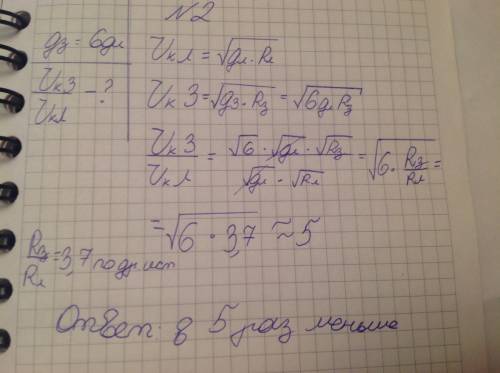 N2
gз = 6gл
Vкз/Vкл - ?
Vкл = √gл·Rл
Vк з = √gз·Rз = √6gлRз
Vк з/Vк л = √6·√gл·√Rз/√gл·√Rл = √6·Rз/Rл =
= √6·3,7 ≈ 5
Rз/Rл = 3,7
Ответ: в 5 раз меньше